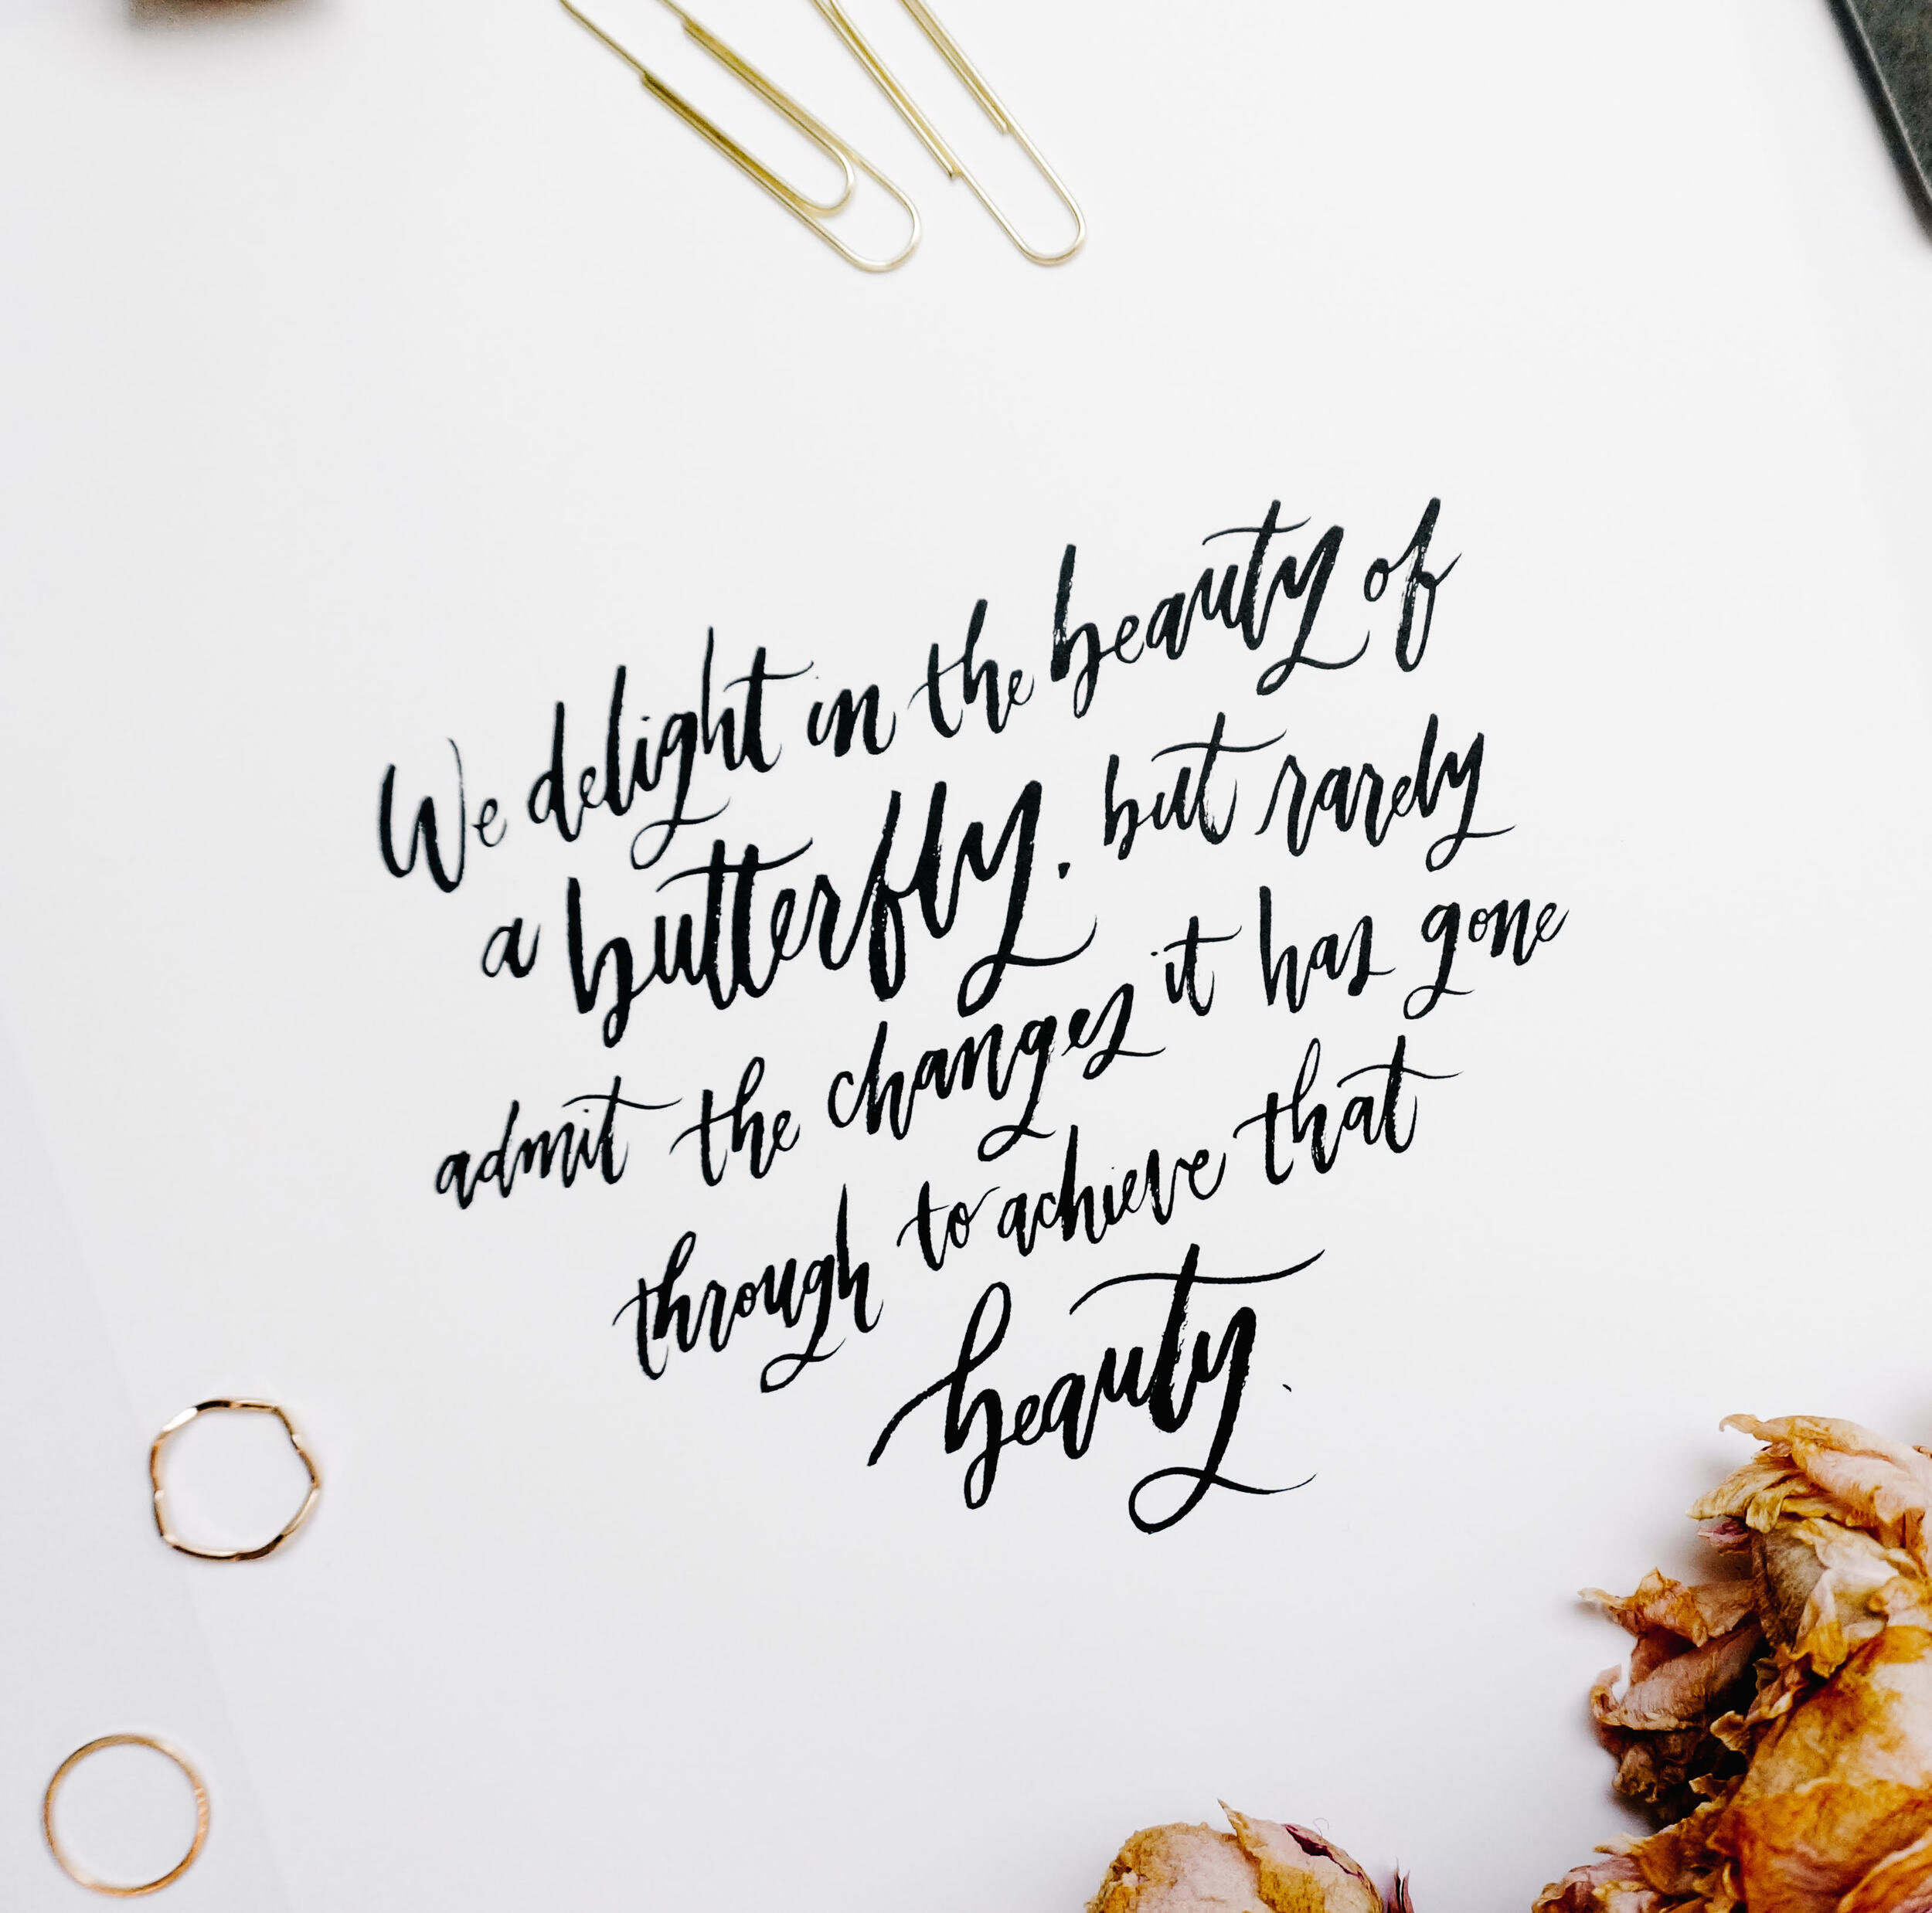 We delight in the beauty of
a butterfly, but rarely
admit the changes it has gone
through to achieve that
beauty.